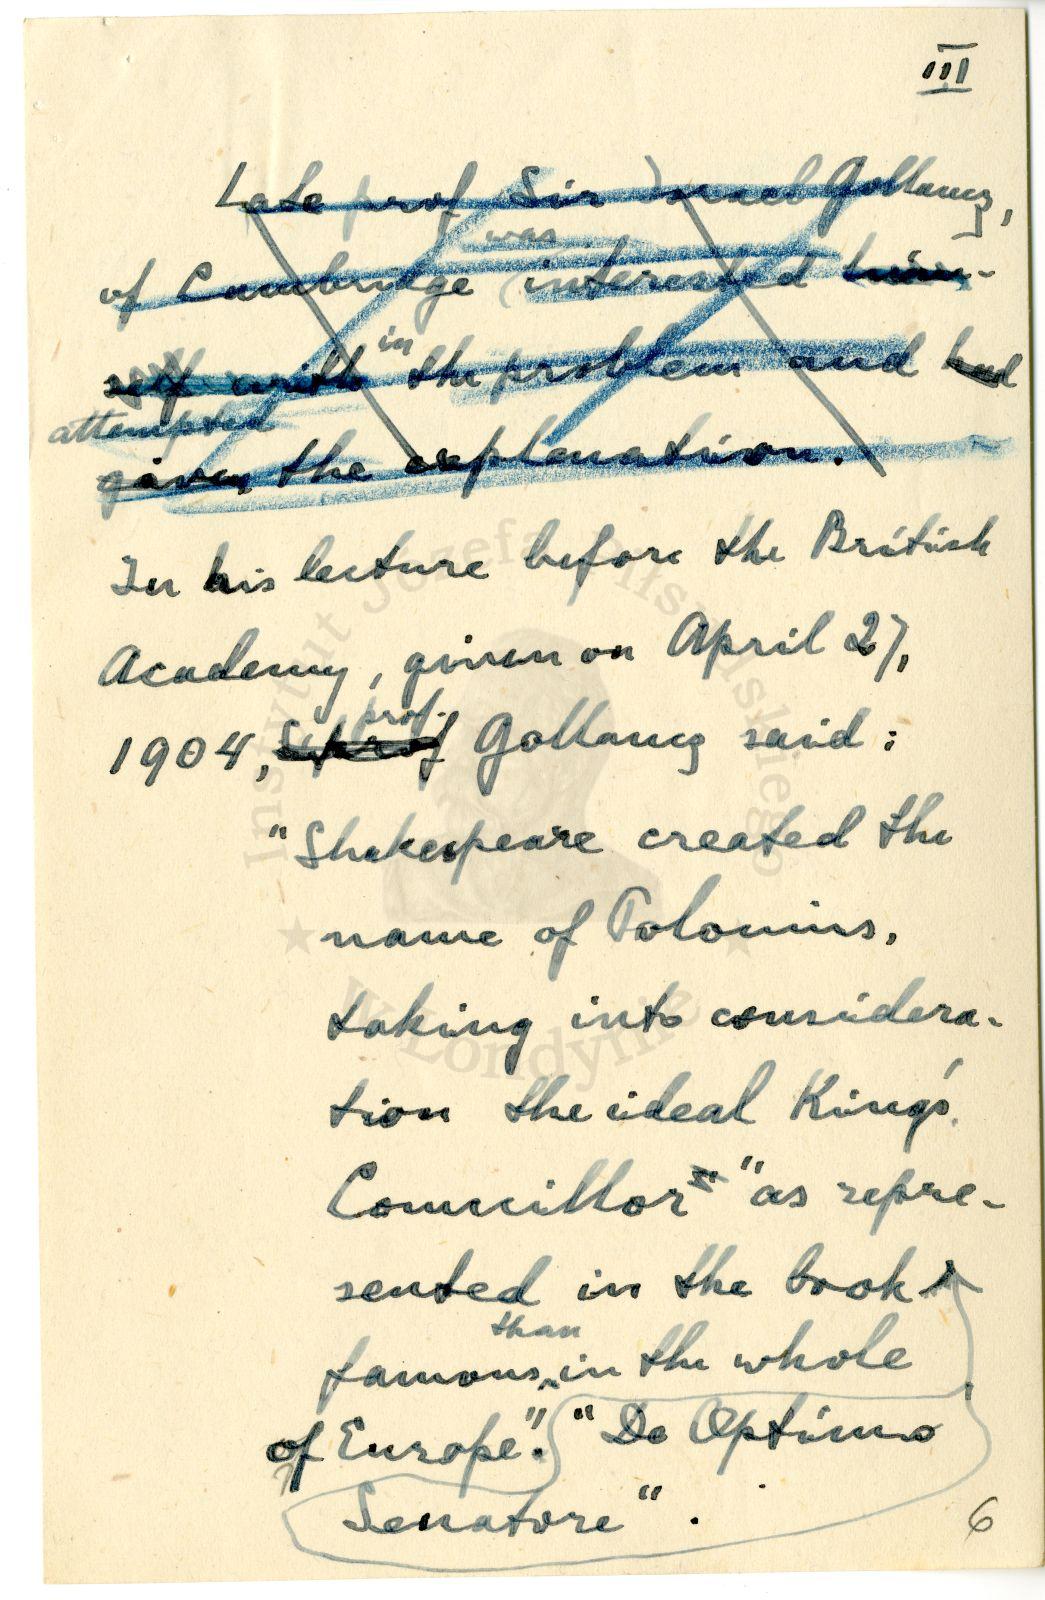 III
Late prof Sir Israel Gollancz,
was
of Cambridge interested him-
in
self with the problem and had
attempted
given the explanation.
In his lecture before the British
Academy, given on April 27,
prof.
1904, Gollancz said:
"Shakespeare created the
name of Polonius,
taking into considera-
tion the ideal King's
Councillor" "as repre-
sented in the book
than
famous in the whole
of Europe". "De Optimo
Senatore".
6
Instytut Józefa Piłsudskiego
w Londynie